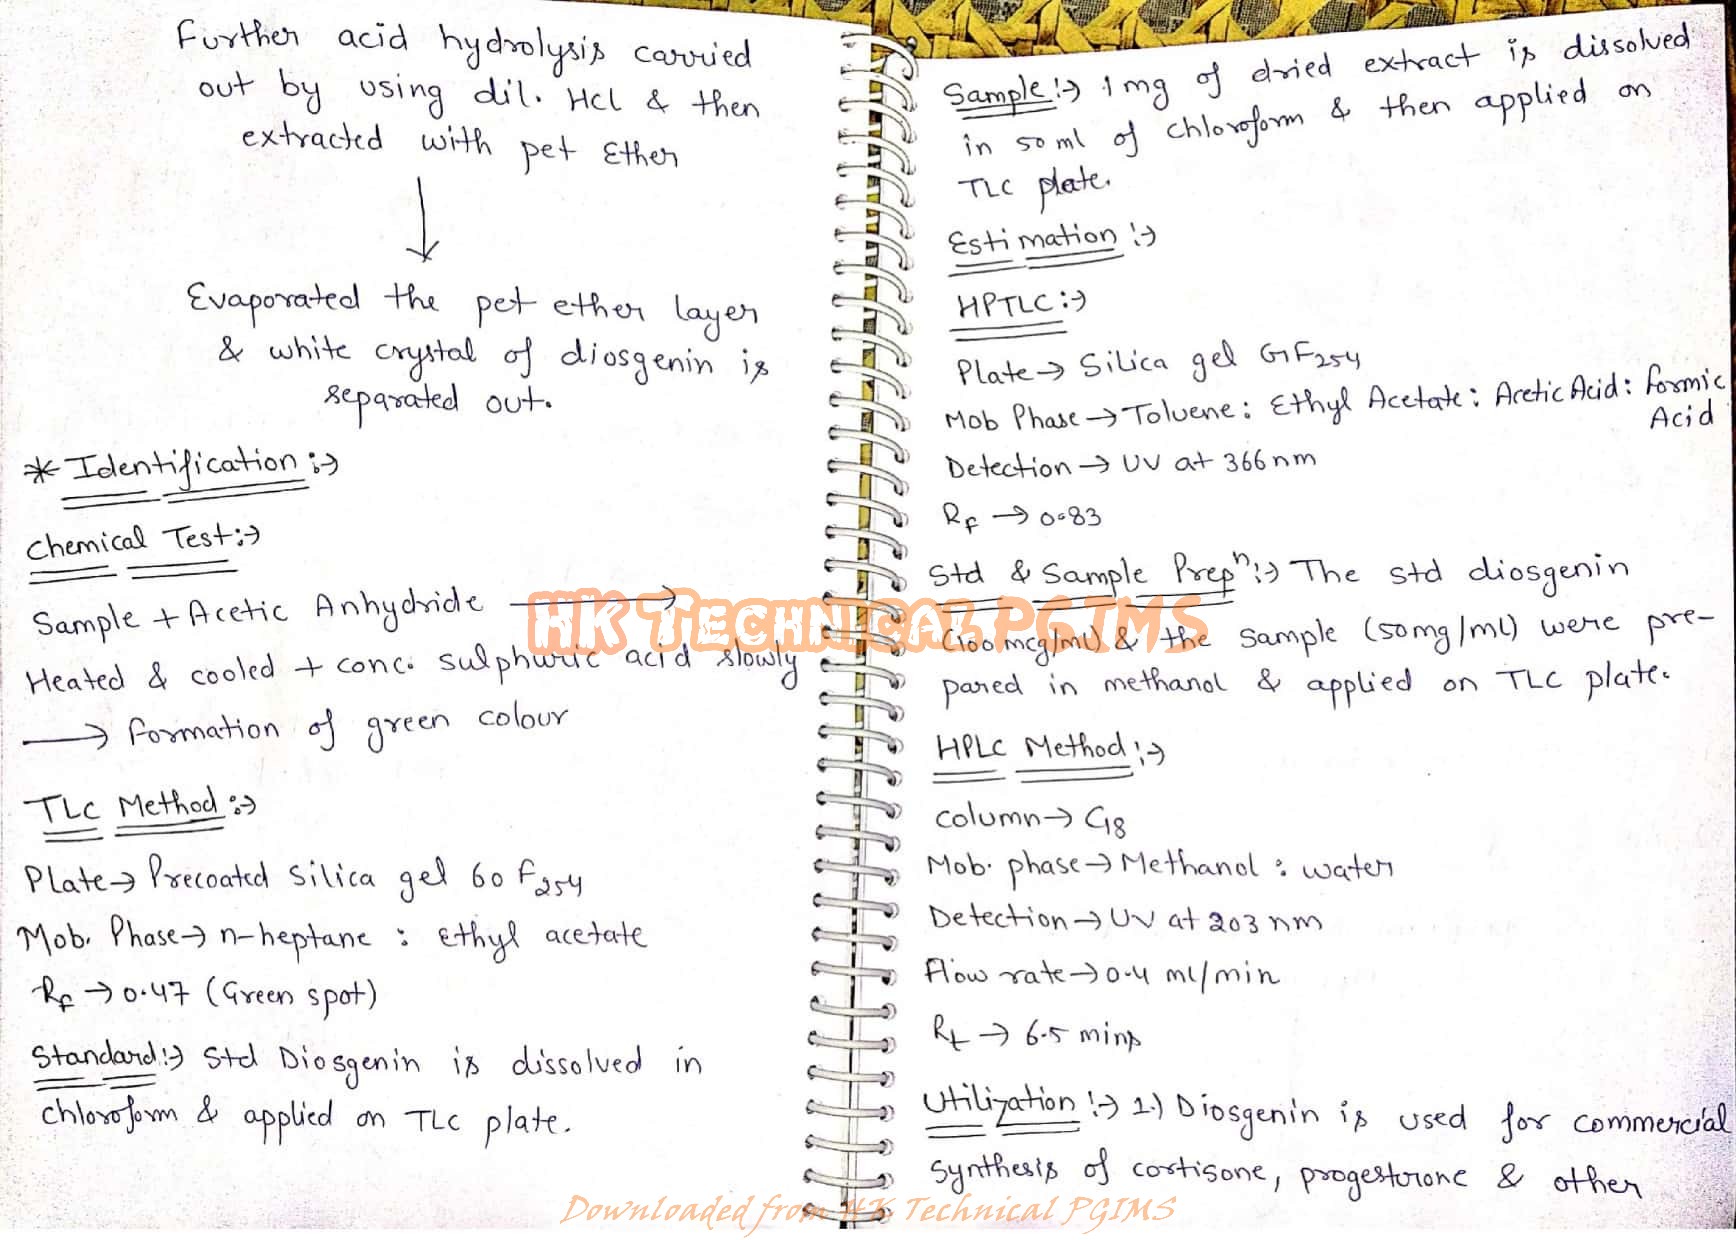 Further acid hydrolysis carried
out by using dil. Hcl & then
extracted with pet Ether
Evaporated the pet ether layer
& white crystal of diosgenin is
separated out.
* Identification :→
Chemical Test:→
Sample + Acetic Anhydride →
Heated & cooled + conc. sulphuric acid slowly
→ formation of green colour
TLC Method :→
Plate → Precoated Silica gel 60 F254
Mob. Phase → n-heptane : Ethyl acetate
Rf → 0.47 (Green spot)
Standard :→ Std Diosgenin is dissolved in
chloroform & applied on TLC plate.
Sample :→ 1mg of dried extract is dissolved
in 50 ml of chloroform & then applied on
TLC plate.
Estimation :→
HPTLC :→
Plate → Silica gel GF254
Mob Phase → Toluene : Ethyl Acetate : Acetic Acid : formic
Acid
Detection → UV at 366 nm
Rf → 0.83
Std & Sample Prepn :→ The std diosgenin
(100 mcg/ml) & the sample (50mg/ml) were pre-
pared in methanol & applied on TLC plate.
HPLC Method :→
Column → C18
Mob. phase → Methanol : water
Detection → UV at 203 nm
Flow rate → 0.4 ml/min
Rt → 6.5 mins
Utilization :→ 1.) Diosgenin is used for commercial
synthesis of cortisone, progesterone & other
HK Technical PGIMS
Downloaded from HK Technical PGIMS